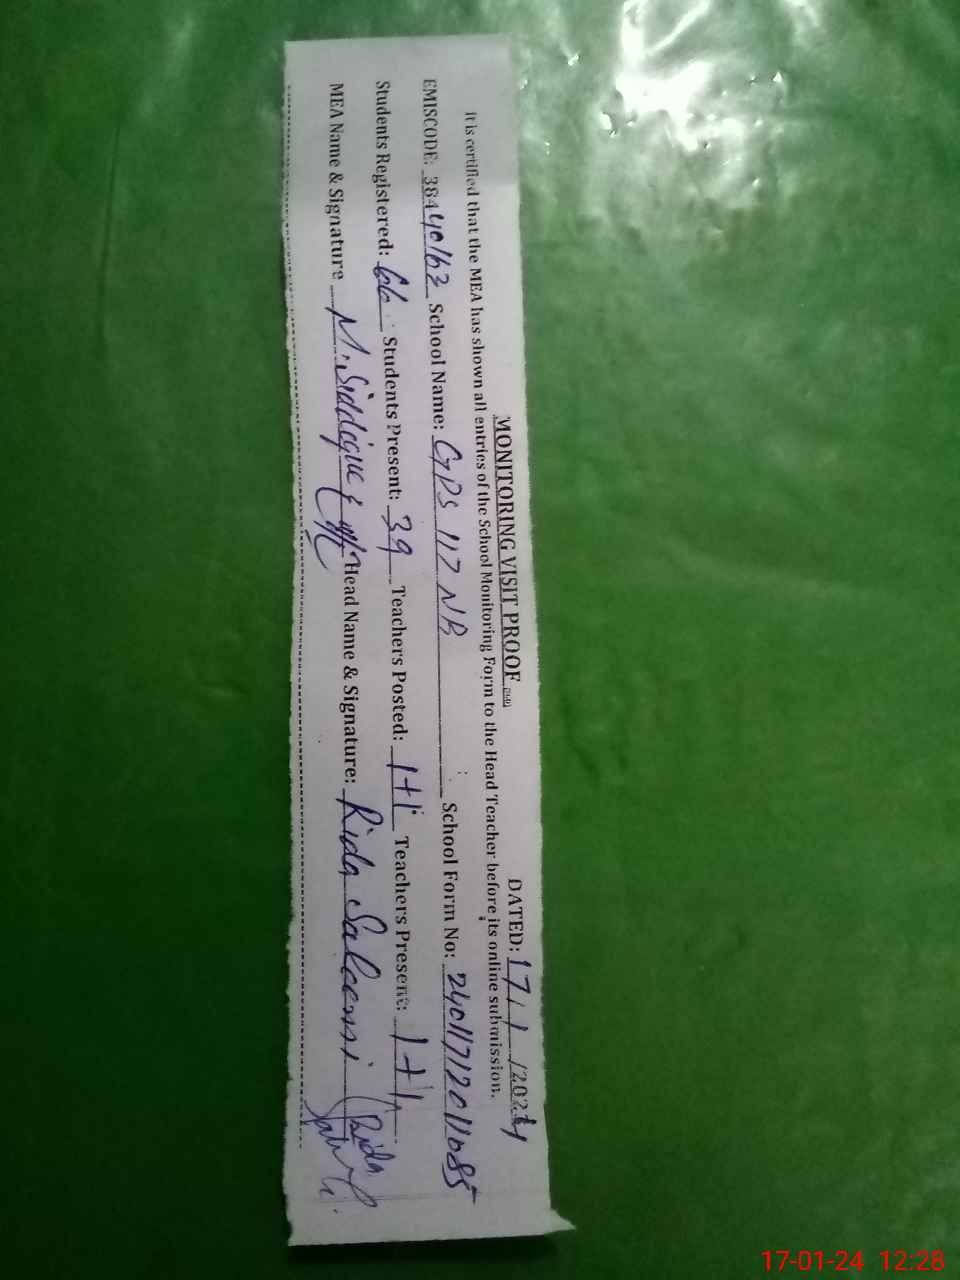 MONITORING VISIT PROOF
DATED: 17/1/2024
It is certified that the MEA has shown all entries of the School Monitoring Form to the Head Teacher before its online submission.
EMISCODE: 38440163 School Name: GPS 117 NB School Form No: 24011712011085
Students Registered: 66 Students Present: 39 Teachers Posted: 1+1 Teachers Present: 1+1
MEA Name & Signature M. Siddique Head Name & Signature: Rida Saleemi
17-01-24 12:28